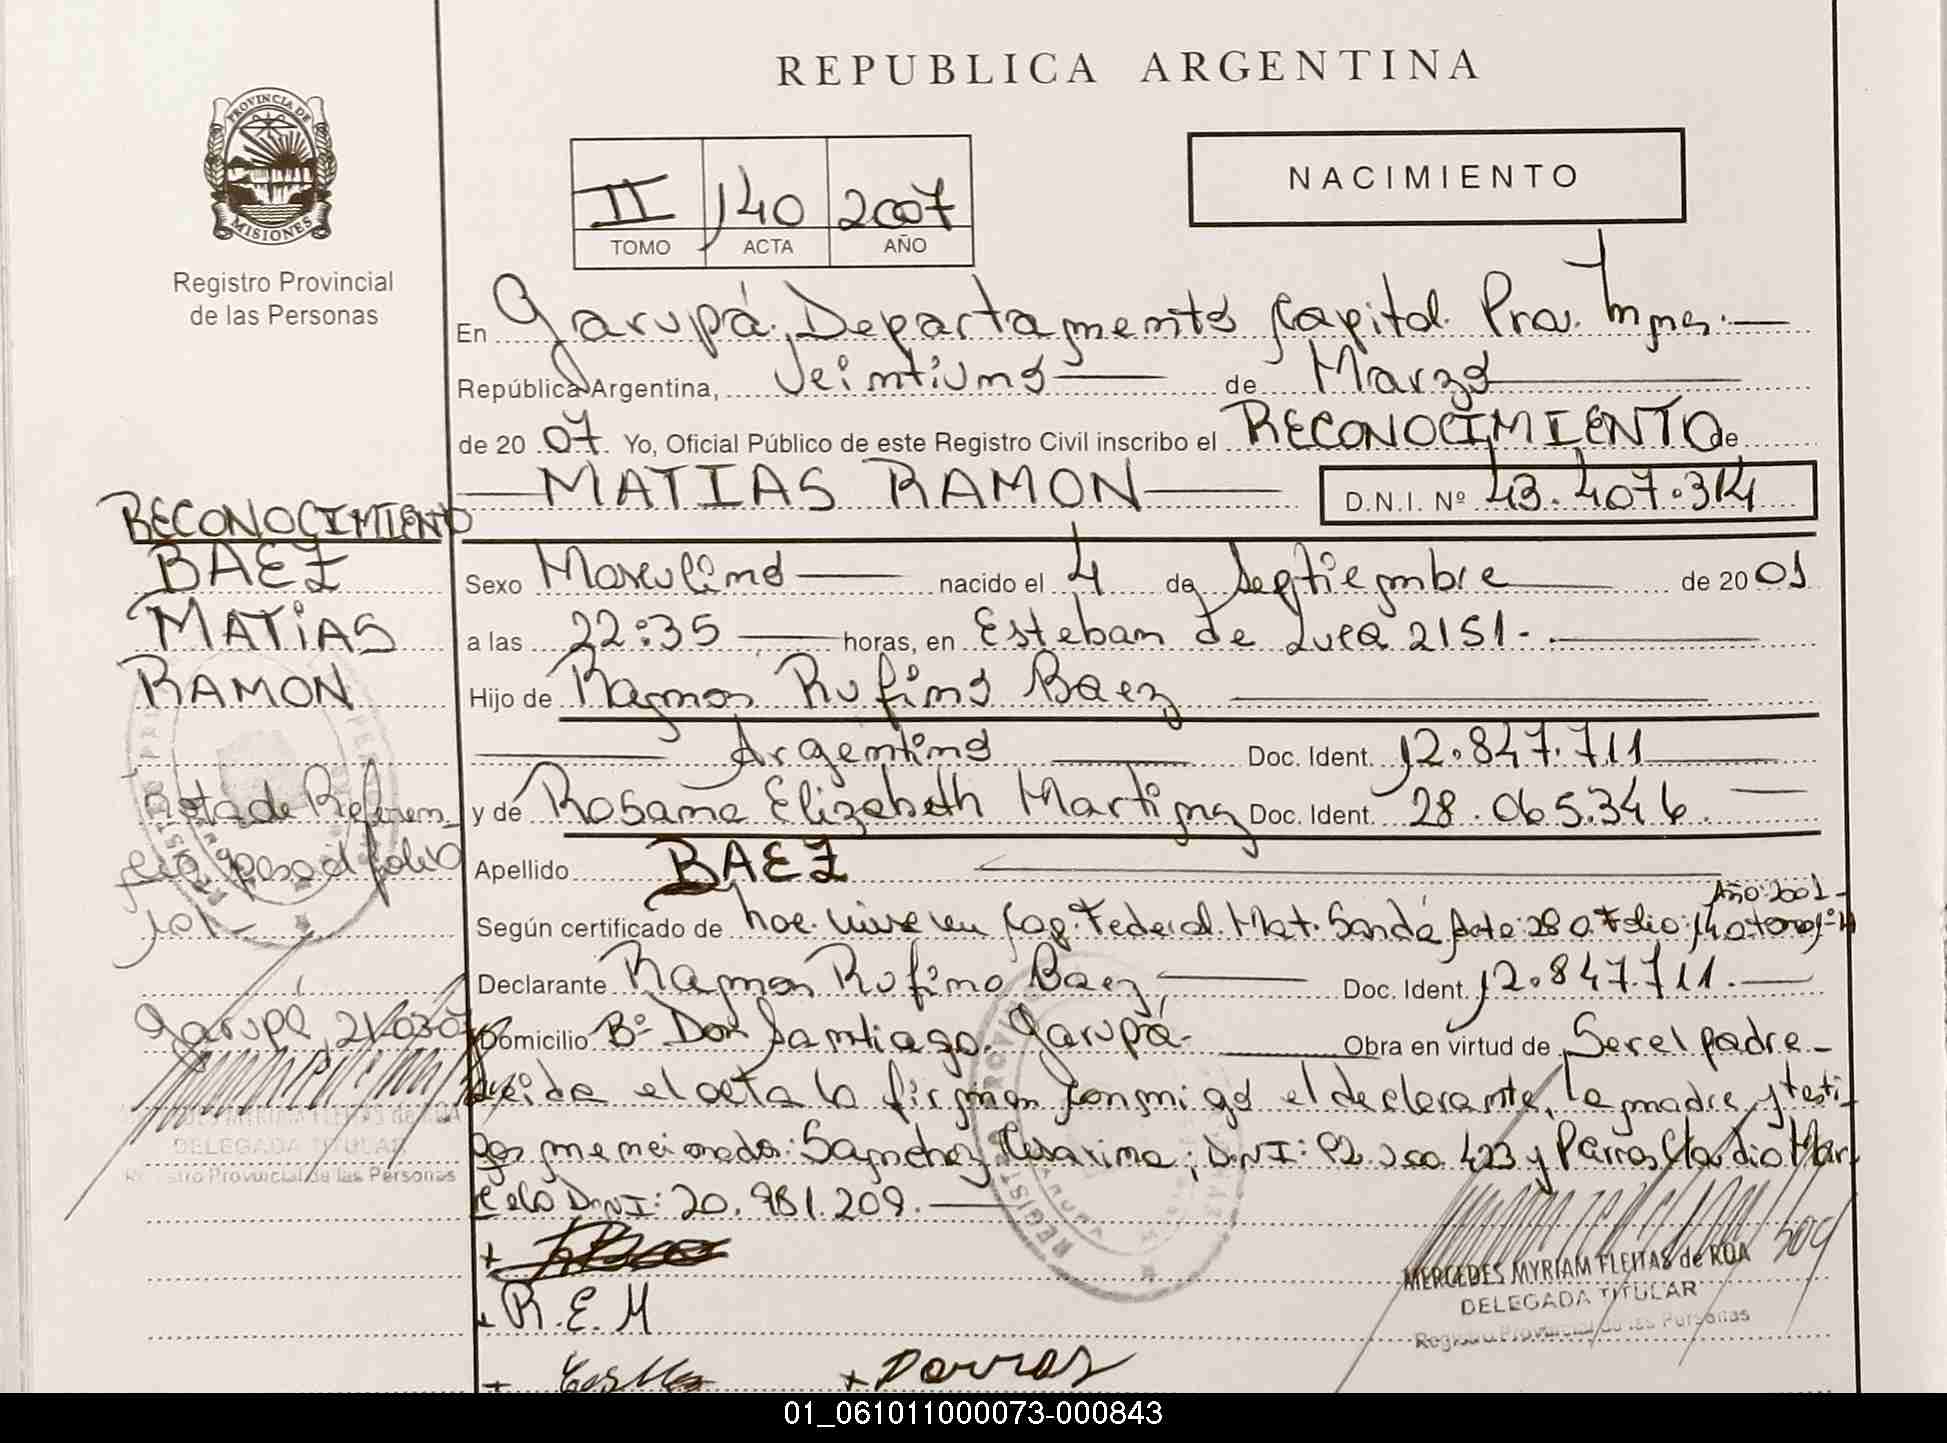 REPUBLICA ARGENTINA
PROVINCIA DE
MISIONES
Registro Provincial
de las Personas
II 140 2007
TOMO ACTA AÑO
NACIMIENTO
En Garupá, Departamento Capital. Pro. Mnes.
República Argentina, Veintiuno de Marzo
de 20 07. Yo, Oficial Público de este Registro Civil inscribo el RECONOCIMIENTO de
MATIAS RAMON D.N.I. Nº 43.407.314
RECONOCIMIENTO
BAEZ
MATIAS
RAMON
Sexo Masculino nacido el 4 de Septiembre de 20 01
a las 22:35 horas, en Esteban de Luca 2151.
Hijo de Ramon Rufino Baez
Argentino Doc. Ident. 12.847.711
y de Rosana Elizabeth Martinez Doc. Ident. 28.065.346.
Apellido BAEZ
Año:2001-
Según certificado de nac. vive en Cap. Federal. Mat. Sardá Acta:280. Folio:140
Declarante Ramon Rufino Baez, Doc. Ident. 12.847.711.
Domicilio Bº Don Santiago. Garupá. Obra en virtud de Ser el padre
Leida el acta la firman conmigo el declarante, la madre y testi-
gos mencionados: Sanchez D.N.I: 423 y Parras Claudio Mar-
celo D.N.I: 20.981.209.
Nota de Referen-
cia pasa al folio
Garupá, 21-03-07
DELEGADA TITULAR
Registro Provincial de las Personas
R.E.M
Parras
MERCEDES MYRIAM FLEITAS de ROA
DELEGADA TITULAR
Registro Provincial de las Personas
01_061011000073-000843